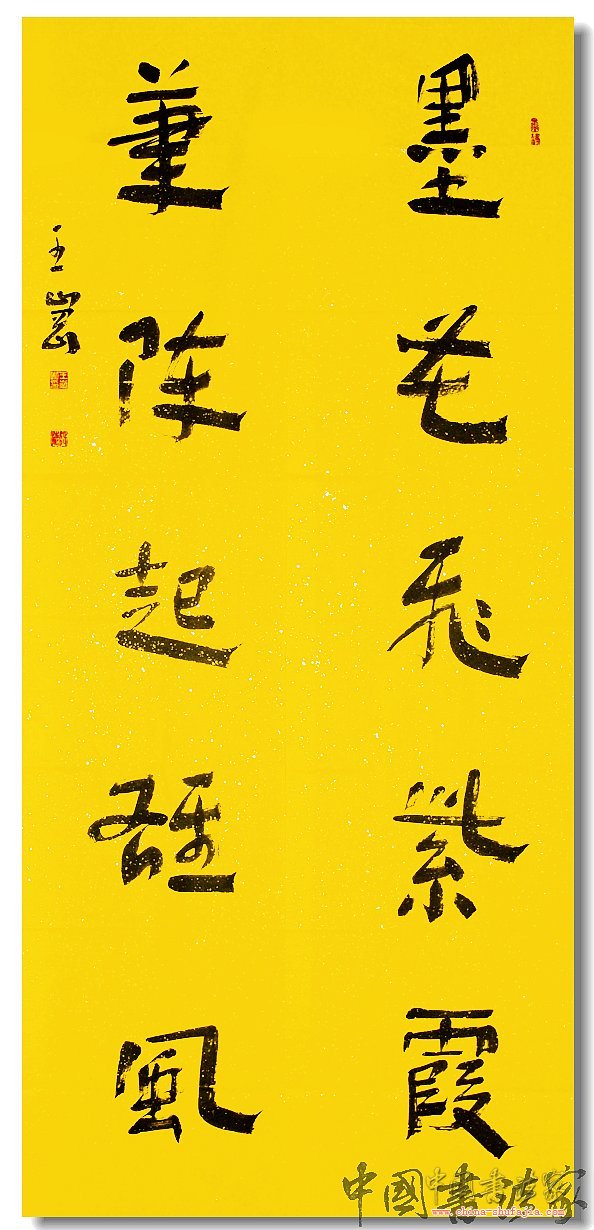 墨花飛紫霞
筆陣起雄風
王
中國書法家
www.china-shufajia.com